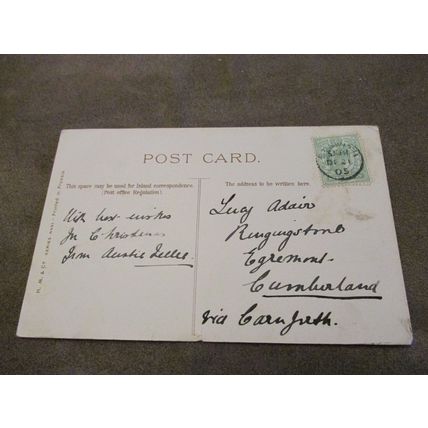 POST CARD.
This space may be used for Inland correspondence.
(Post office Regulation).
The address to be written here.
With best wishes
for Christmas
from Auntie
Lucy Adair
Ringingstone
Egremont
Cumberland
via Carnforth.
DE 21
05